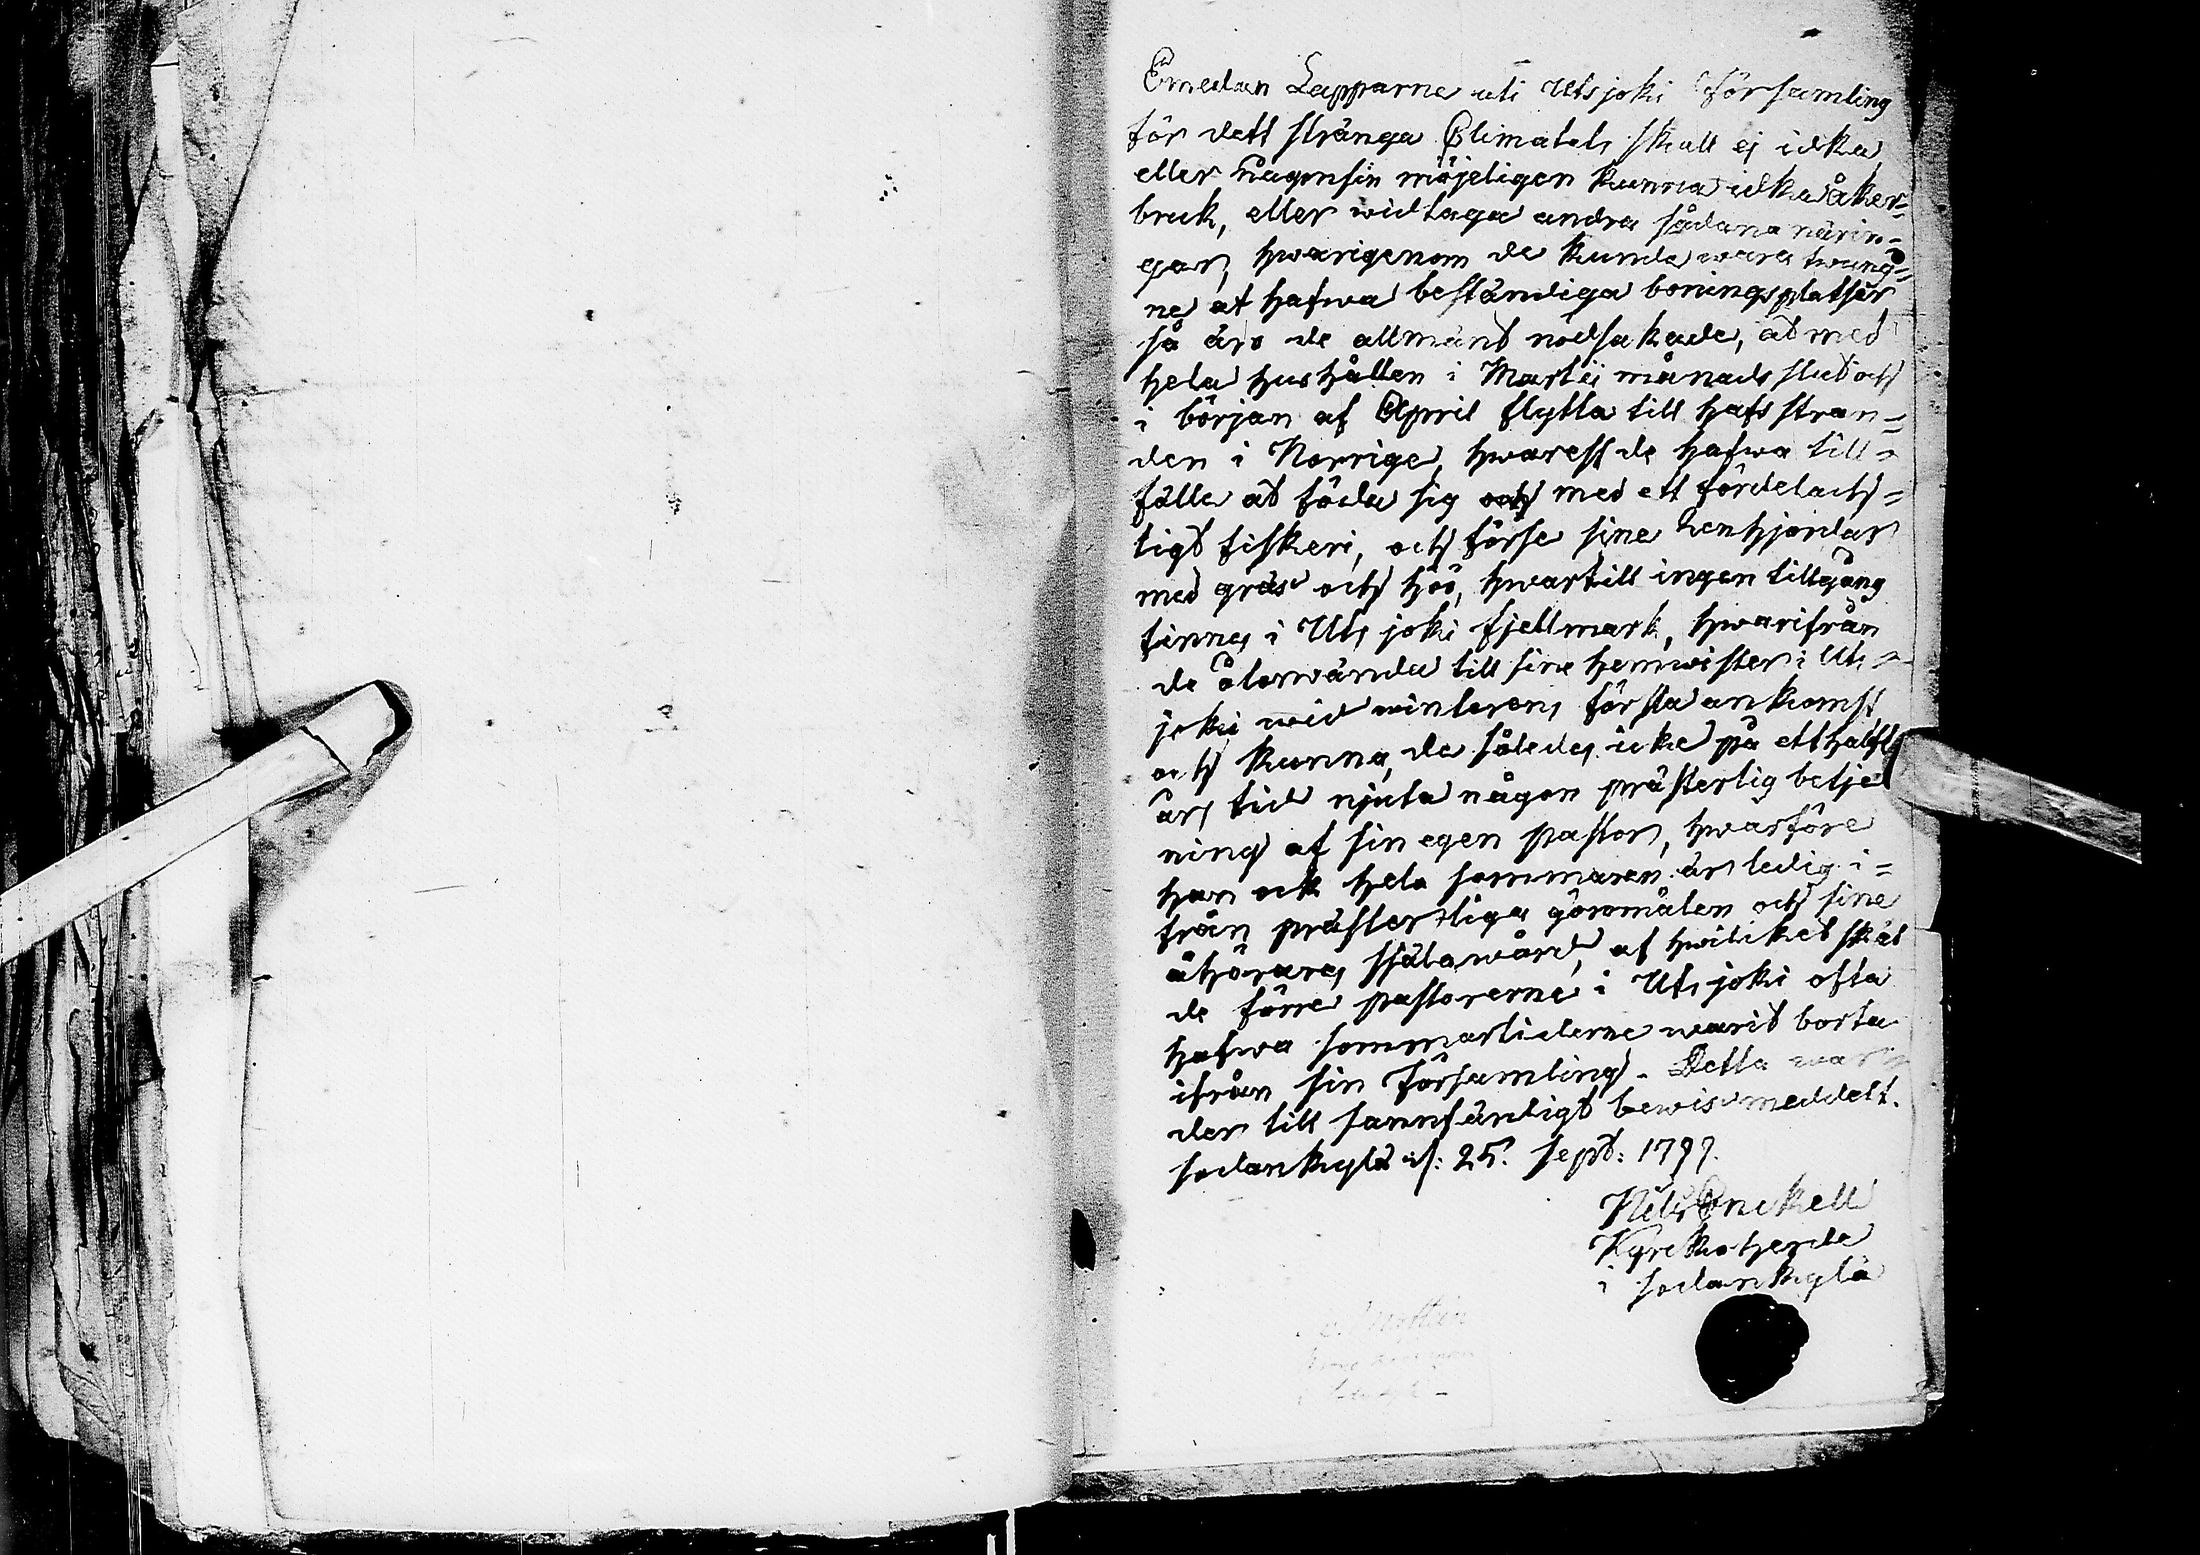 Emedan Lapparne uti Utsjoki Församling
för dett stränga Climatets skull ej idka
eller någonsin möjeligen kunna idka åker=
bruk, eller widtaga andra sådana närin=
gar, hwarigenom de kunde wara twung=
ne at hafwa beständiga boningsplatser
så äro de allmänt nödsakade, at med
hela hushållen i Martij månads slut och
i början af April flytta till hafs stran=
den i Norrige, hwarest de hafwa till=
fälle at föda sig och med ett fördelach=
tigt fiskeri, och förse sine Renhjordar
med gräs och höö, hwartill ingen tillgång
finnes i Utsjoki fjellmark, hwarifrån
de återwända till sine hemwister i Uts=
joki wid winterens första ankomst
och kunna de således icke på ett halft
års tid njuta någon prästerlig betje
ning af sin egen pastor, hwarföre
han ock hela sommaren är ledig i=
från prästerliga göromålen och sine
åhörares själawård, af hwilcket skäl
de förre pastorerne i Utsjoki ofta
hafwa sommartiderne warit borta
ifrån sin Församling. Detta war
der till sannfärdigt bewis meddelt.
Sodankylä d: 25. Sept: 1799.
Nils Onckell
Kyrckoherde
i Sodankylä